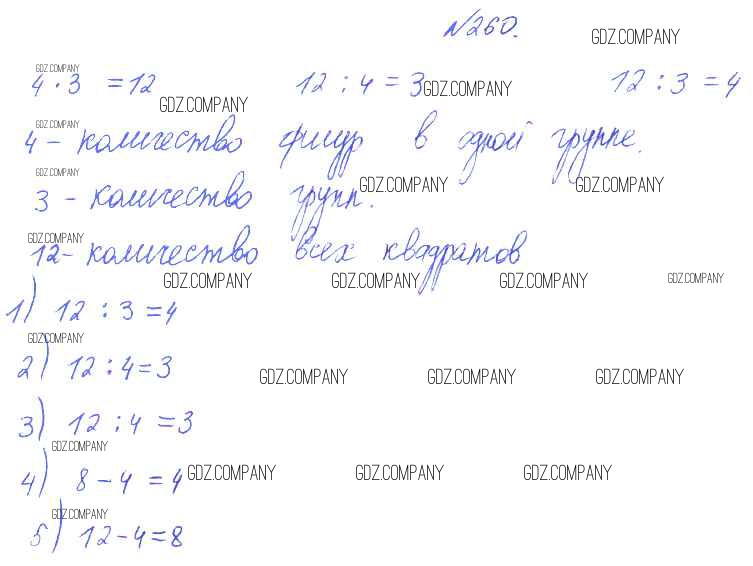 №260.
GDZ.COMPANY
GDZ.COMPANY
4 · 3 = 12 12 : 4 = 3 GDZ.COMPANY 12 : 3 = 4
GDZ.COMPANY
GDZ.COMPANY
4 - количество фигур в одной группе.
GDZ.COMPANY
3 - количество групп. GDZ.COMPANY GDZ.COMPANY
GDZ.COMPANY
12 - количество всех квадратов
GDZ.COMPANY GDZ.COMPANY GDZ.COMPANY GDZ.COMPANY
1) 12 : 3 = 4
GDZ.COMPANY
2) 12 : 4 = 3 GDZ.COMPANY GDZ.COMPANY GDZ.COMPANY
3) 12 : 4 = 3
GDZ.COMPANY
4) 8 - 4 = 4 GDZ.COMPANY GDZ.COMPANY GDZ.COMPANY
GDZ.COMPANY
5) 12 - 4 = 8